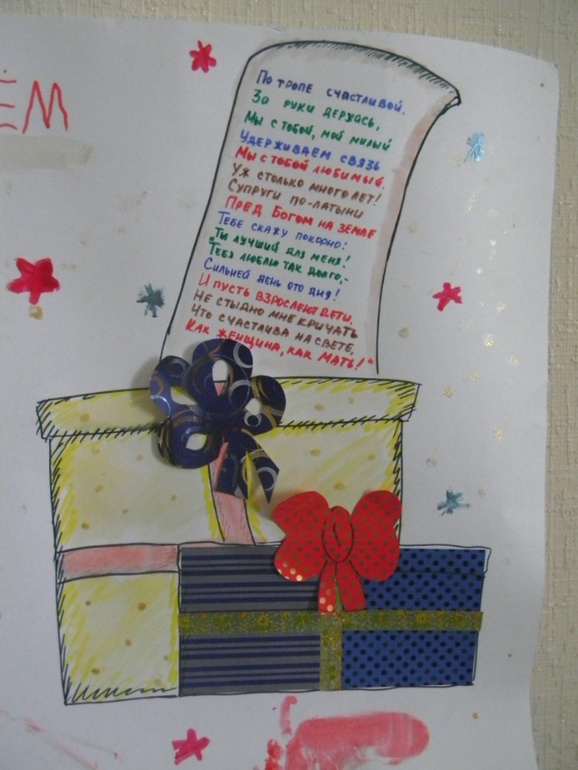 ЁМ
По тропе счастливой.
За руки держась,
Мы с тобой, мой милый
Удерживаем связь
Мы с тобой любимый.
Уж столько много лет!
Супруги по-латыни
Пред Богом на земле
Тебе скажу покорно:
"Ты лучший для меня!
Тебя люблю так долго,-
Сильней день ото дня!
И пусть взрослеют дети.
Не стыдно мне кричать
Что счастлива на свете,
Как женщина, как мать!"